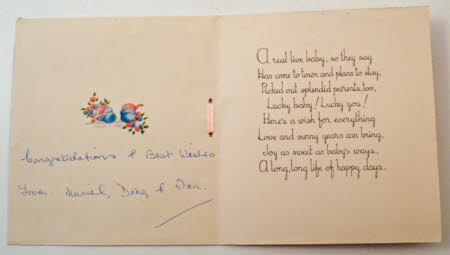 Congratulations & Best Wishes
From. Muriel, Doug & Dan.
A real live baby, so they say
Has come to town and plans to stay,
Picked out splendid parents, too,
Lucky baby! Lucky you!
Here's a wish for everything
Love and sunny years can bring,
Joy as sweet as baby's ways,
A long, long life of happy days.